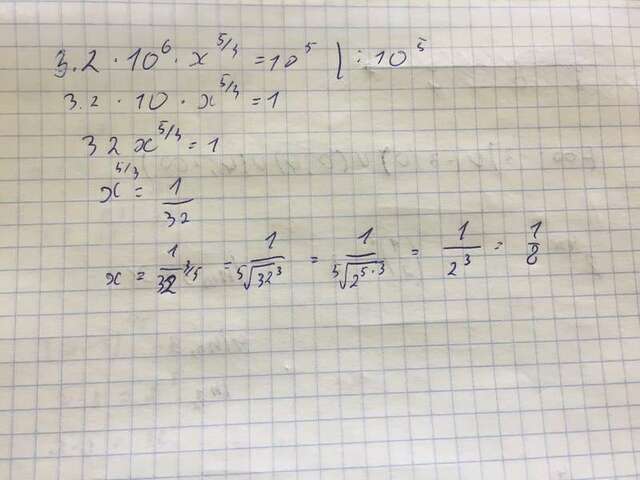 3.2 · 10⁶ · x^5/3 = 10⁵ | : 10⁵
3.2 · 10 · x^5/3 = 1
32 x^5/3 = 1
x^5/3 = 1/32
x = 1/32^3/5 = 1/⁵√32³ = 1/⁵√2^5·3 = 1/2³ = 1/8